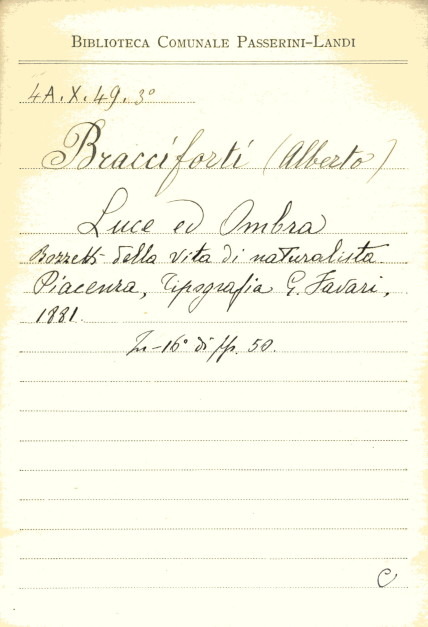 BIBLIOTECA COMUNALE PASSERINI-LANDI
4A.X.49.3°
Bracciforti (Alberto)
Luce ed Ombra
Bozzetti della vita di naturalista.
Piacenza, Tipografia G. Favari,
1881.
In-16° di pp. 50.
C